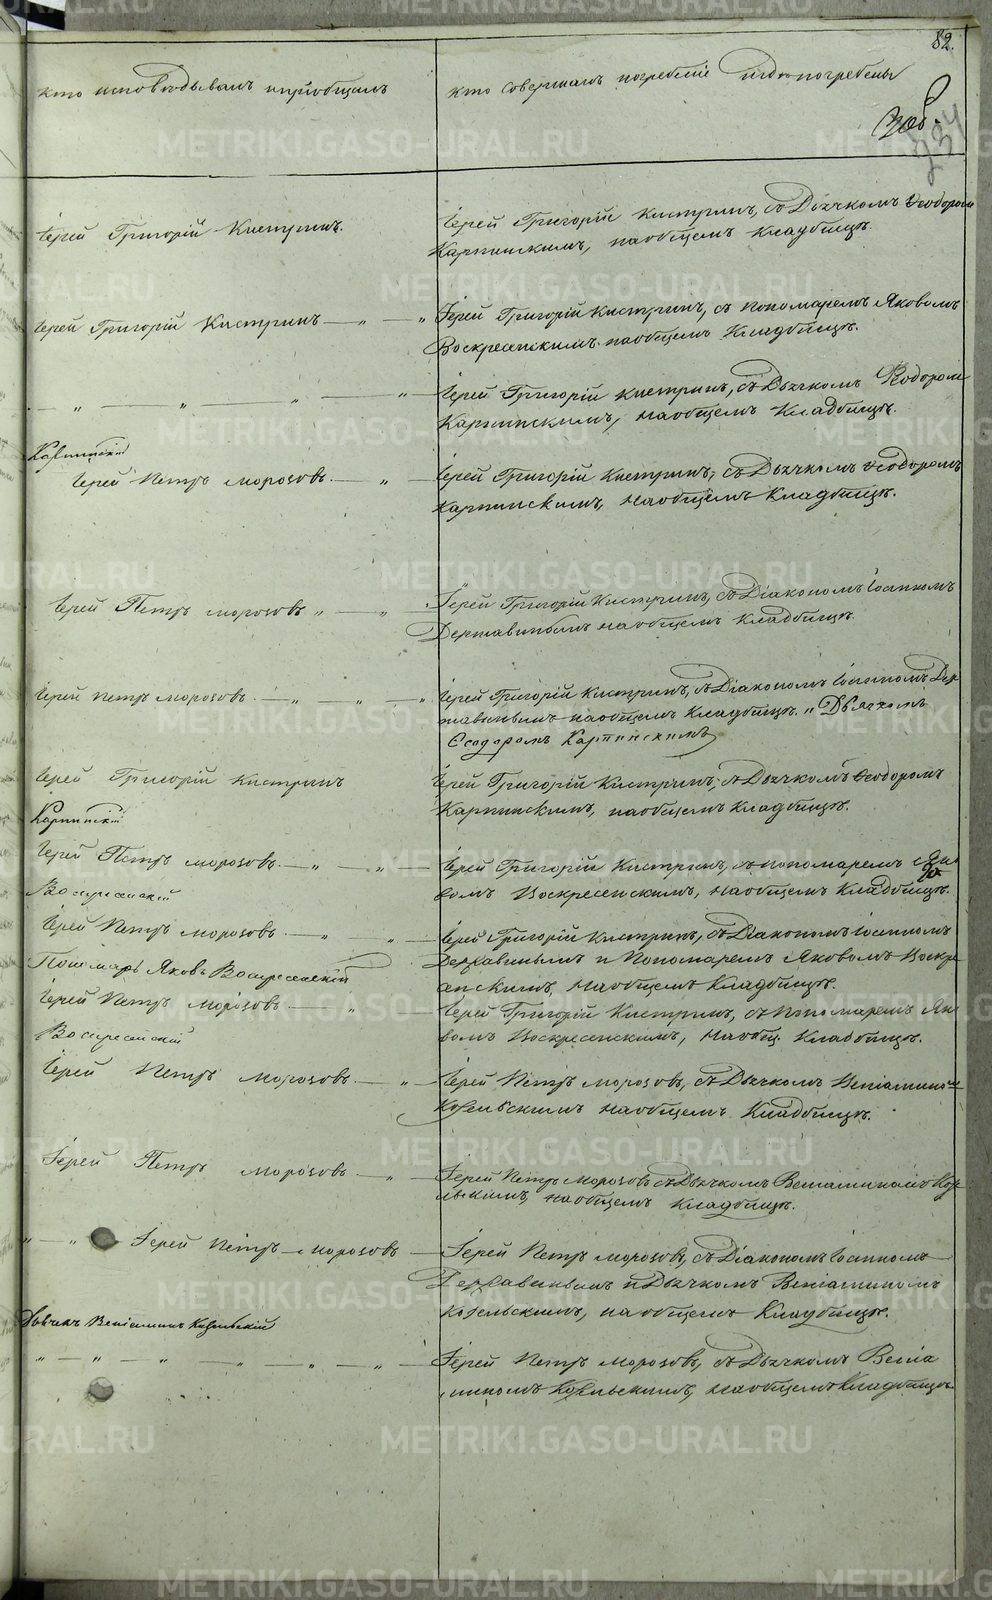 82.
кто исповѣдывалъ и пріобщалъ
кто совершалъ погребеніе и гдѣ погребены
Іерей Григорій Кистринъ.
Іерей Григорій Кистринъ, съ Дьячкомъ Ѳеодоромъ
Карпинскимъ, на общемъ кладбищѣ.
Іерей Григорій Кистринъ — „ — „
Іерей Григорій Кистринъ, съ Пономаремъ Яковомъ
Воскресенскимъ на общемъ кладбищѣ.
— „ — „ — „ — „
Іерей Григорій Кистринъ, съ Дьячкомъ Ѳеодоромъ
Карпинскимъ, на общемъ кладбищѣ.
Карпинскій
Іерей Петръ Морозовъ. — „ —
Іерей Григорій Кистринъ, съ Дьячкомъ Ѳеодоромъ
Карпинскимъ, на общемъ кладбищѣ.
Іерей Петръ Морозовъ „ — „ —
Іерей Григорій Кистринъ, съ Діакономъ Іоанномъ
Державинымъ на общемъ кладбищѣ.
Іерей Петръ Морозовъ. — „ — „ — „
Іерей Григорій Кистринъ, съ Діакономъ Іоанномъ Дер-
жавинымъ на общемъ кладбищѣ. и Дьячкомъ
Ѳеодоромъ Карпинскимъ
Іерей Григорій Кистринъ
Іерей Григорій Кистринъ, съ Дьячкомъ Ѳеодоромъ
Карпинскимъ, на общемъ кладбищѣ.
Карпинскій
Іерей Петръ Морозовъ. — „ — „ —
Іерей Григорій Кистринъ, съ Пономаремъ Яко-
вомъ Воскресенскимъ, на общемъ кладбищѣ.
Воскресенскій
Іерей Петръ Морозовъ. — „ — „ —
Іерей Григорій Кистринъ, съ Діакономъ Іоанномъ
Державинымъ и Пономаремъ Яковомъ Воскре-
сенскимъ, на общемъ кладбищѣ.
Пономарь Яковъ Воскресенскій
Іерей Петръ Морозовъ. — „
Іерей Григорій Кистринъ, съ Пономаремъ Яко-
вомъ Воскресенскимъ, на общ. кладбищѣ.
Воскресенскій
Іерей Петръ Морозовъ. — „ —
Іерей Петръ Морозовъ, съ Дьячкомъ Веніаминомъ
Козельскимъ на общемъ кладбищѣ.
Іерей Петръ Морозовъ. — „ —
Іерей Петръ Морозовъ съ Дьячкомъ Веніаминомъ Козе-
льскимъ, на общемъ кладбищѣ.
„ — „ — Іерей Петръ Морозовъ —
Іерей Петръ Морозовъ, съ Діакономъ Іоанномъ
Державинымъ и Дьячкомъ Веніаминомъ
Козельскимъ, на общемъ кладбищѣ.
Дьячекъ Веніаминъ Козельскій
„ — „ — „ — „ — „ — „ —
Іерей Петръ Морозовъ, съ Дьячкомъ Веніа
миномъ Козельскимъ, на общемъ кладбищѣ.
METRIKI.GASO-URAL.RU